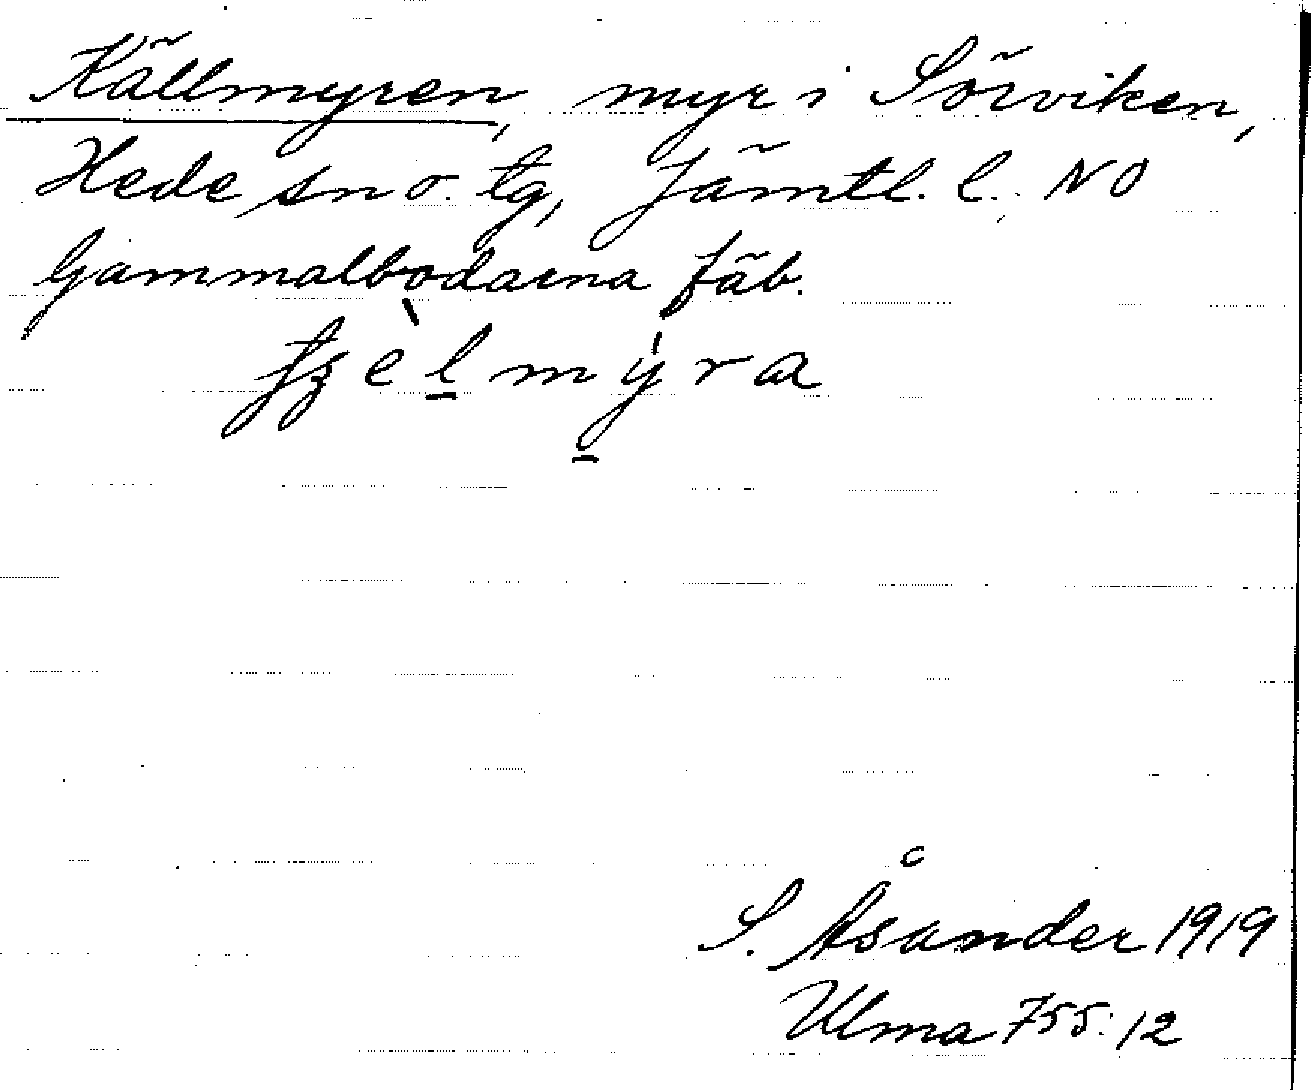 Källmyren, myr i Sörviken,
Hede sn o. tg, Jämtl. l. NO
Gammalbodarna fäb.
tʒèlmýra
S. Åsander 1919
Ulma 755:12